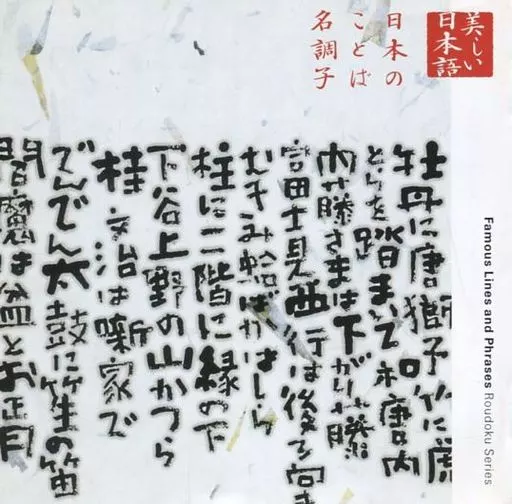 美しい
日本語
日本の
ことば
名調子
牡丹に唐獅子竹に虎
とらを踏まいて和唐内
内藤さまは下がり藤
富士見西行は後ろ向
むきみ蛤ばかはしら
柱に二階に縁の下
下谷上野の山かつら
桂文治は噺家で
でんでん太鼓に笙の笛
閻魔は盆とお正月
Famous Lines and Phrases Roudoku Series